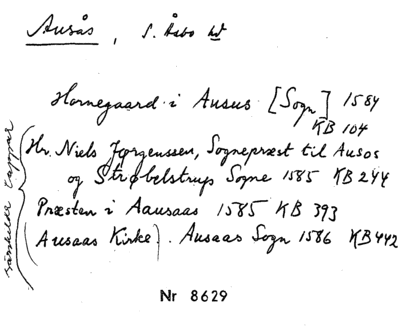 Ausås, S. Åsbo hd
Hornegaard i Ausus [Sogn] 1584
KB 104
Hr. Niels Jørgenssen, Sognepræst til Ausos
og Strøbelstrups Sogne 1585 KB 244
Præsten i Aausaas 1585 KB 393
(Ausaas Kirke). Ausaas Sogn 1586 KB 442
särskilda lappar
Nr 8629